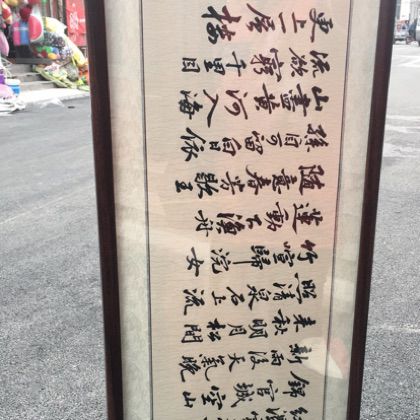 錦官城空山
新雨後天氣晚
來秋明月松間
照清泉石上流
竹喧歸浣女
蓮動下漁舟
隨意春芳歇王
孫自可留白日依
山盡黃河入海
流欲窮千里目
更上一層樓